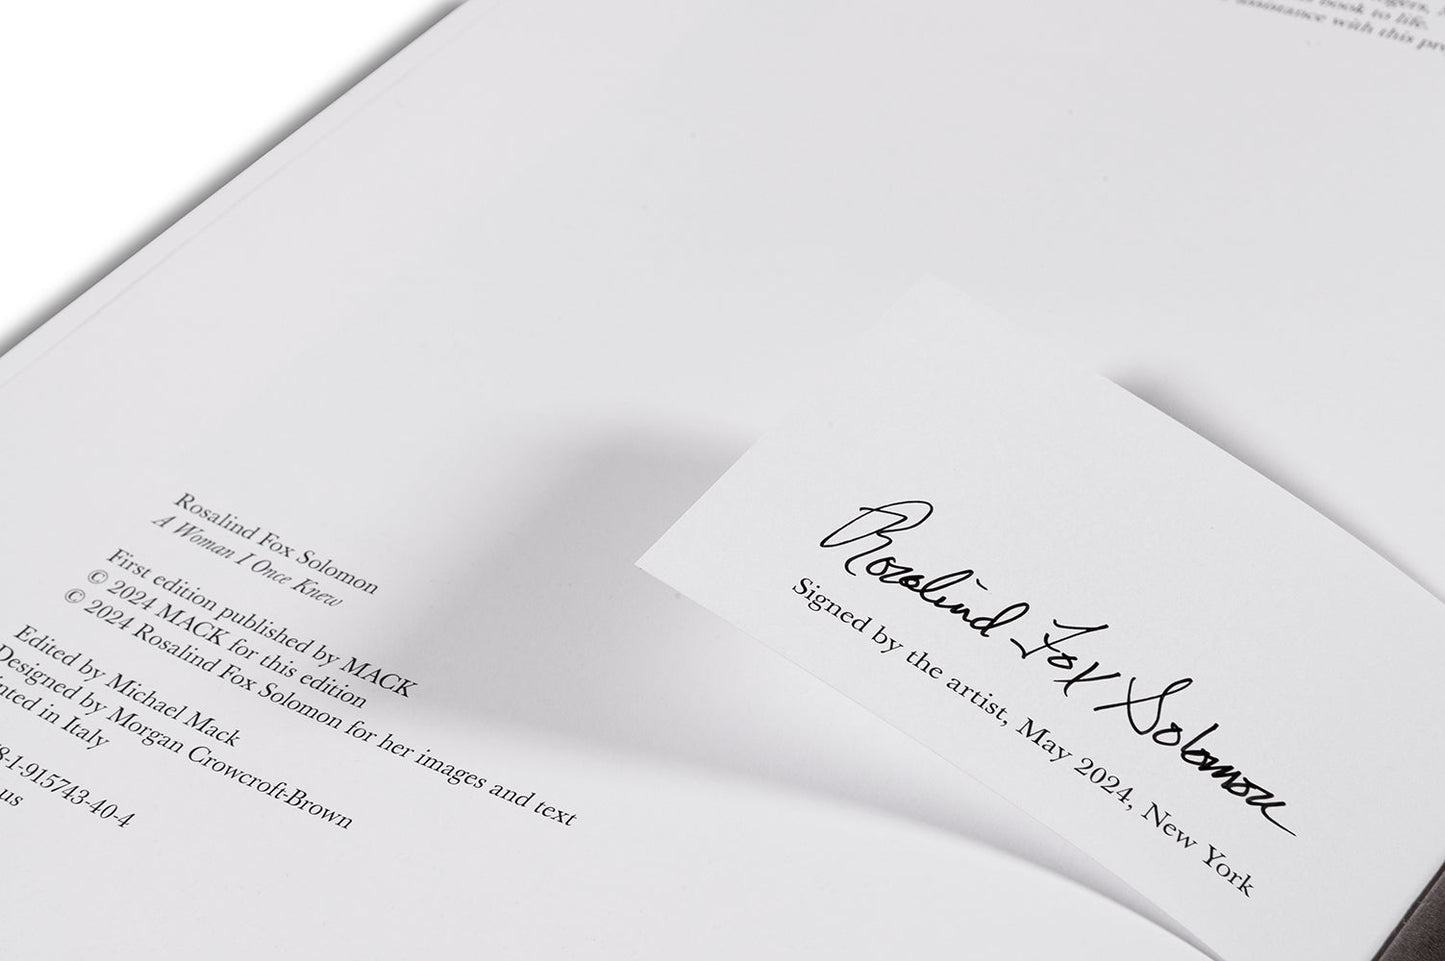 book to life.
assistance with this
Rosalind Fox Solomon
A Woman I Once Knew
First edition published by MACK
© 2024 MACK for this edition
© 2024 Rosalind Fox Solomon for her images and text
Edited by Michael Mack
Designed by Morgan Crowcroft-Brown
in Italy
8-1-915743-40-4
Rosalind Fox Solomon
Signed by the artist, May 2024, New York